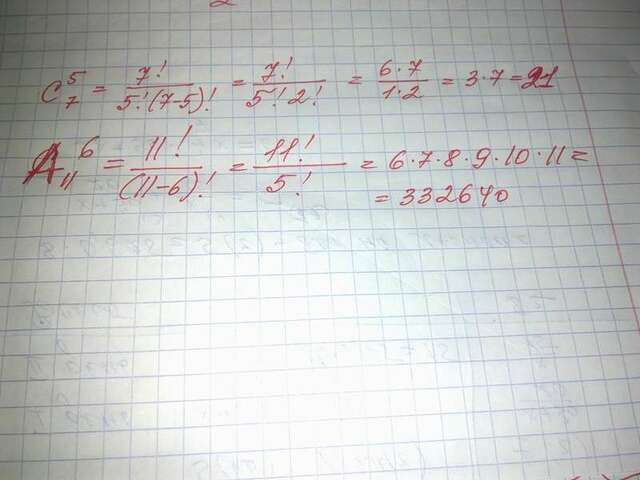 C₇⁵ = 7!/5!(7-5)! = 7!/5!2! = 6·7/1·2 = 3·7 = 21
A₁₁⁶ = 11!/(11-6)! = 11!/5! = 6·7·8·9·10·11 =
= 332640